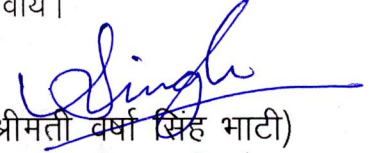 वाये।
Singh
श्रीमती वर्षा सिंह भाटी)